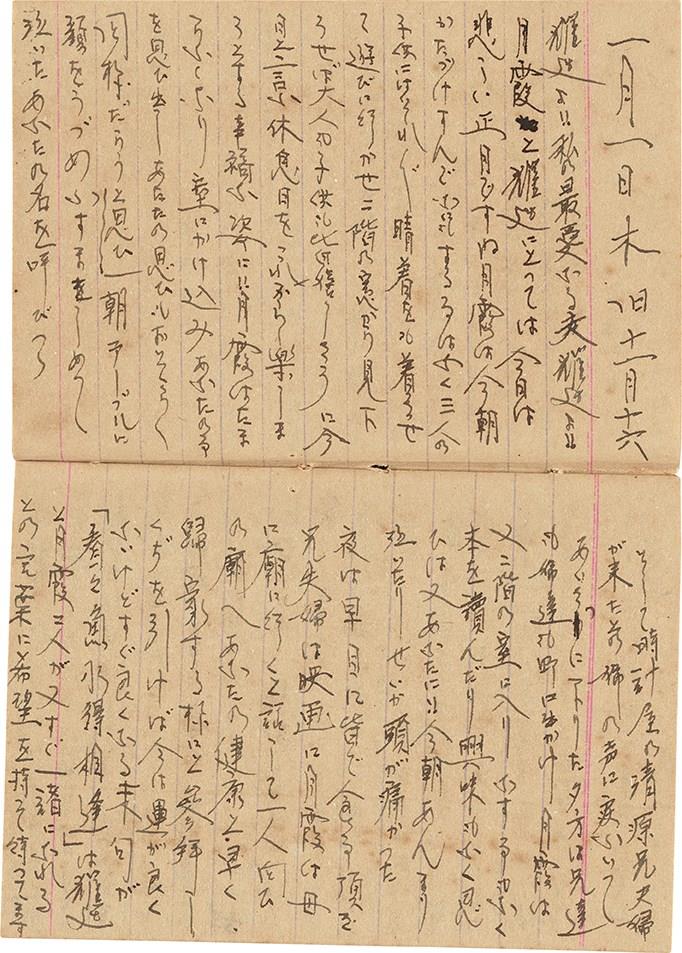 一月一日木旧十一月十六
耀逵よ!!私の最愛なる夫耀逵よ!!
月霞と耀逵にとっては今日は
悲しい正月ですね月霞は今朝
かたづけすんでするはなく三人の
子供にはそれぞれ晴着をも着させ
て遊びに行かせ二階の窓から見下
ろせば大人も子供も皆嬉しそうに今
日と言ふ休息日をこれから楽しま
うとする幸福な姿に!!月霞はたま
らなくなり室にかけ込みあなたの事
を思ひ出しあなたの思ひもおそらく
同様だらうと思ひ朝テーブルに
顔をうづめなすまましめつし
泣いたあなたの名を呼びつつ
そして時計屋の清源兄夫婦
が来た若姉の声に涙ふいて
あいさつに下りた夕方は兄達
も姉達も町に出かけ月霞は
又二階の室に入りなすもなく
本を讀んだり興味もなく思
ひは又あなたに!!今朝あんまり
泣いたりせいか頭が痛かった
夜は早目に皆で食る頂き
兄夫婦は映画に月霞は母
に廟に行くと話して一人向ひ
の廟へあなたの健康と早く
歸家する様にと參拝し
くぢを引けば今は運が良く
ないけどすぐ良くなる末句が
「看々魚水得相逢」は耀逵
と月霞二人が又すぐ一緒になれる
との言葉に希望を持って待ってます